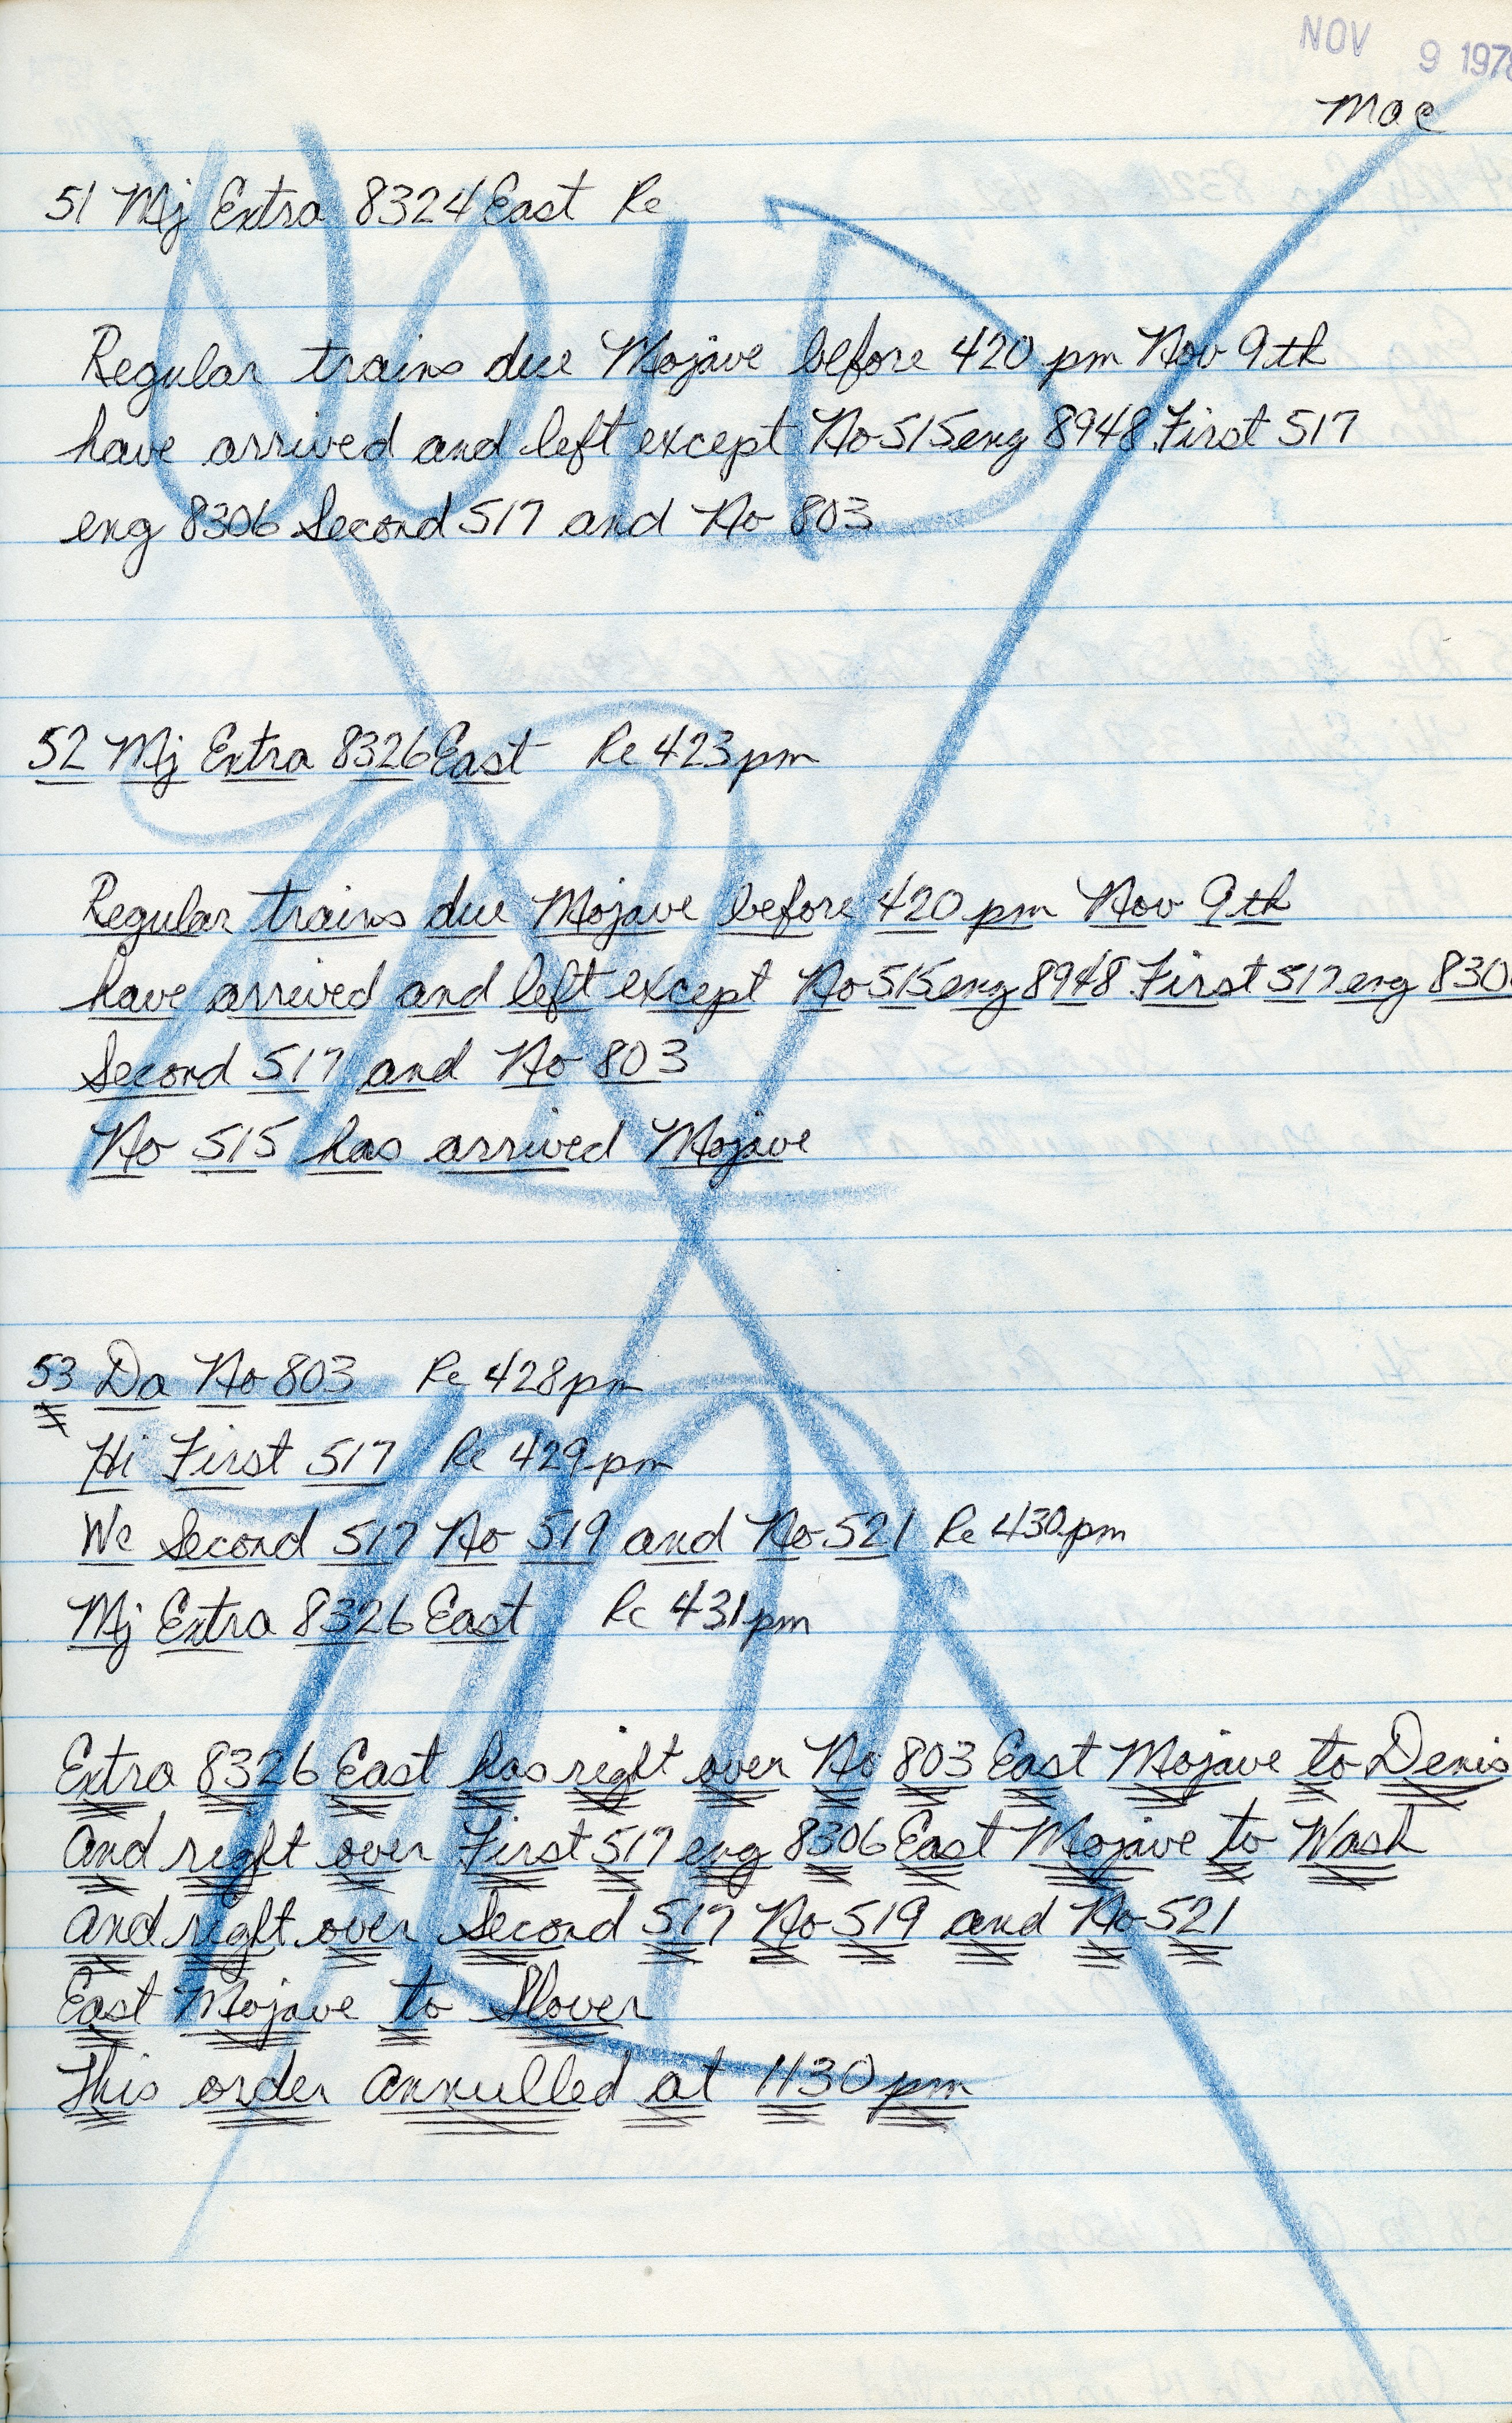 NOV 9 1978
Mac
51 Mj Extra 8324 East Re
VOID
Regular trains due Mojave before 420 pm Nov 9th
have arrived and left except No 515 eng 8948 First 517
eng 8306 Second 517 and No 803
52 Mj Extra 8326 East Re 423 pm
Regular trains due Mojave before 420 pm Nov 9th
have arrived and left except No 515 eng 8948 First 517 eng 830
Second 517 and No 803
No 515 has arrived Mojave
53 Da No 803 Re 428 pm
Hi First 517 Re 429 pm
We Second 517 No 519 and No 521 Re 430 pm
Mj Extra 8326 East Re 431 pm
Extra 8326 East has right over No 803 East Mojave to Denis
And right over First 517 eng 8306 East Mojave to Wash
And right over Second 517 No 519 and No 521
East Mojave to Slover
This order annulled at 1130 pm